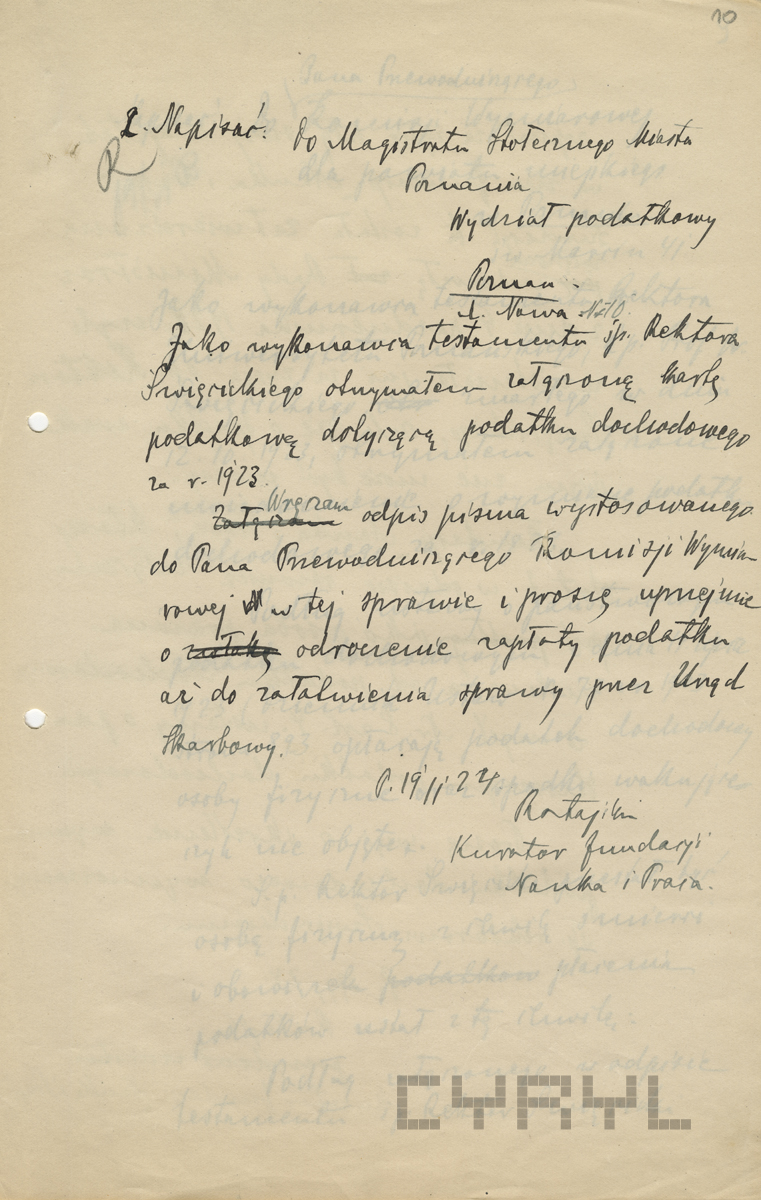 10
2. Napisać: Do Magistratu Stołecznego Miasta
R
Poznania
Wydział podatkowy
Poznań.
ul. Nowa №10.
Jako wykonawca testamentu śp. Rektora
Święcickiego otrzymałem załączoną kartę
podatkową dotyczącą podatku dochodowego
za r. 1923.
Wręczam
Załączam odpis pisma wystosowanego
do Pana Przewodniczącego Komisji Wymia-
rowej w tej sprawie i proszę uprzejmie
o zwłokę odroczenie zapłaty podatku
aż do załatwienia sprawy przez Urząd
Skarbowy.
P. 19/II 24.
Kurator fundacji
Nauka i Praca.
CYRYL